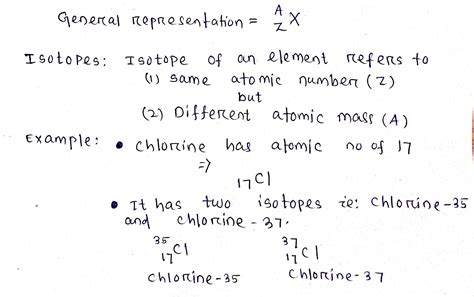 General representation = ᴬ_Z X
Isotopes: Isotope of an element refers to
(1) same atomic number (Z)
but
(2) Different atomic mass (A)
Example: • Chlorine has atomic no of 17
=>
₁₇Cl
• It has two isotopes ie: Chlorine-35
and chlorine-37.
³⁵₁₇Cl ³⁷₁₇Cl
Chlorine-35 Chlorine-37